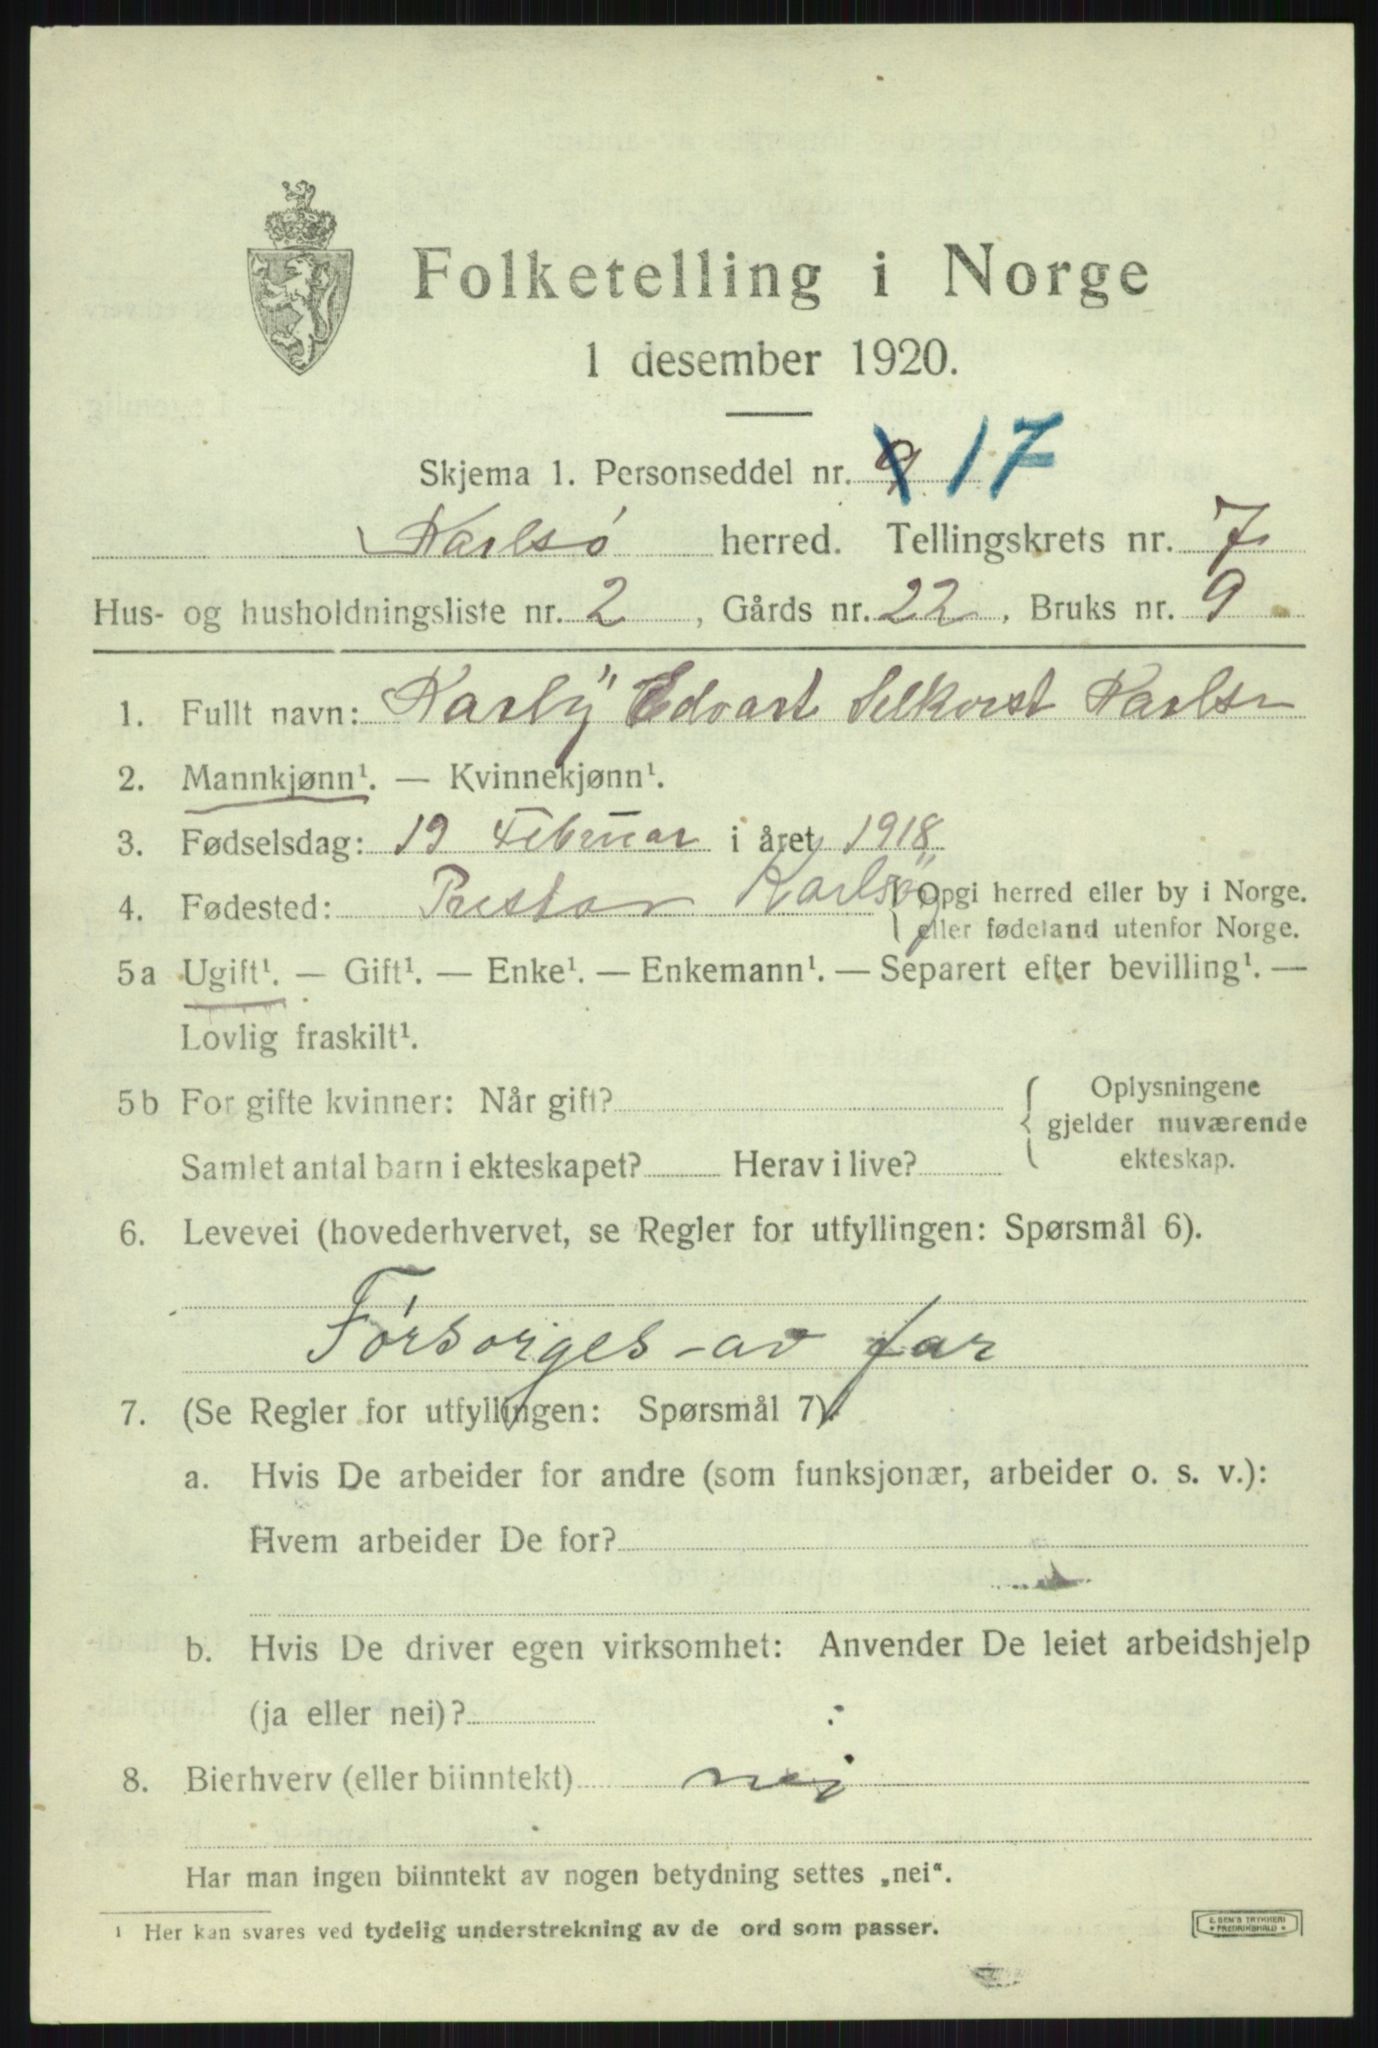 Folketelling i Norge
1 desember 1920.
Skjema 1. Personseddel nr. 9 17
Karlsö herred. Tellingskrets nr. 7
Hus- og husholdningsliste nr. 2, Gårds nr. 22. Bruks nr. 9
1. Fullt navn: Karly Edvart Selkvist Karlsn
2. Mannkjønn¹. — Kvinnekjønn¹.
3. Fødselsdag: 19 Februar i året 1918
4. Fødested: Karlsöy { Opgi herred eller by i Norge.
eller fødeland utenfor Norge.
5a Ugift¹. — Gift¹. — Enke¹. — Enkemann¹. — Separert efter bevilling¹. —
Lovlig fraskilt¹.
5b For gifte kvinner: Når gift? { Oplysningene
gjelder nuværende
Samlet antal barn i ekteskapet? Herav i live? ekteskap.
6. Levevei (hovederhvervet, se Regler for utfyllingen: Spørsmål 6).
Førsorges-av far
7. (Se Regler for utfyllingen: Spørsmål 7).
a. Hvis De arbeider for andre (som funksjonær, arbeider o. s. v.):
Hvem arbeider De for?
b. Hvis De driver egen virksomhet: Anvender De leiet arbeidshjelp
(ja eller nei)?
8. Bierhverv (eller biinntekt) nej
Har man ingen biinntekt av nogen betydning settes „nei“.
¹ Her kan svares ved tydelig understrekning av de ord som passer.
E. SEM'S TRYKKERI
FREDRIKSHALD